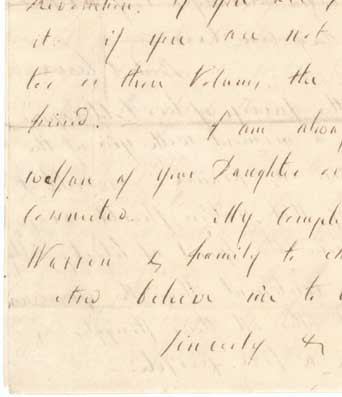 Revolution. If you are
it if you are not
too or three Volums, the
friend. I am alway
welfare of your Daughter
Connected. My Compl
Warren & family to
And believe me to
Sincerely &